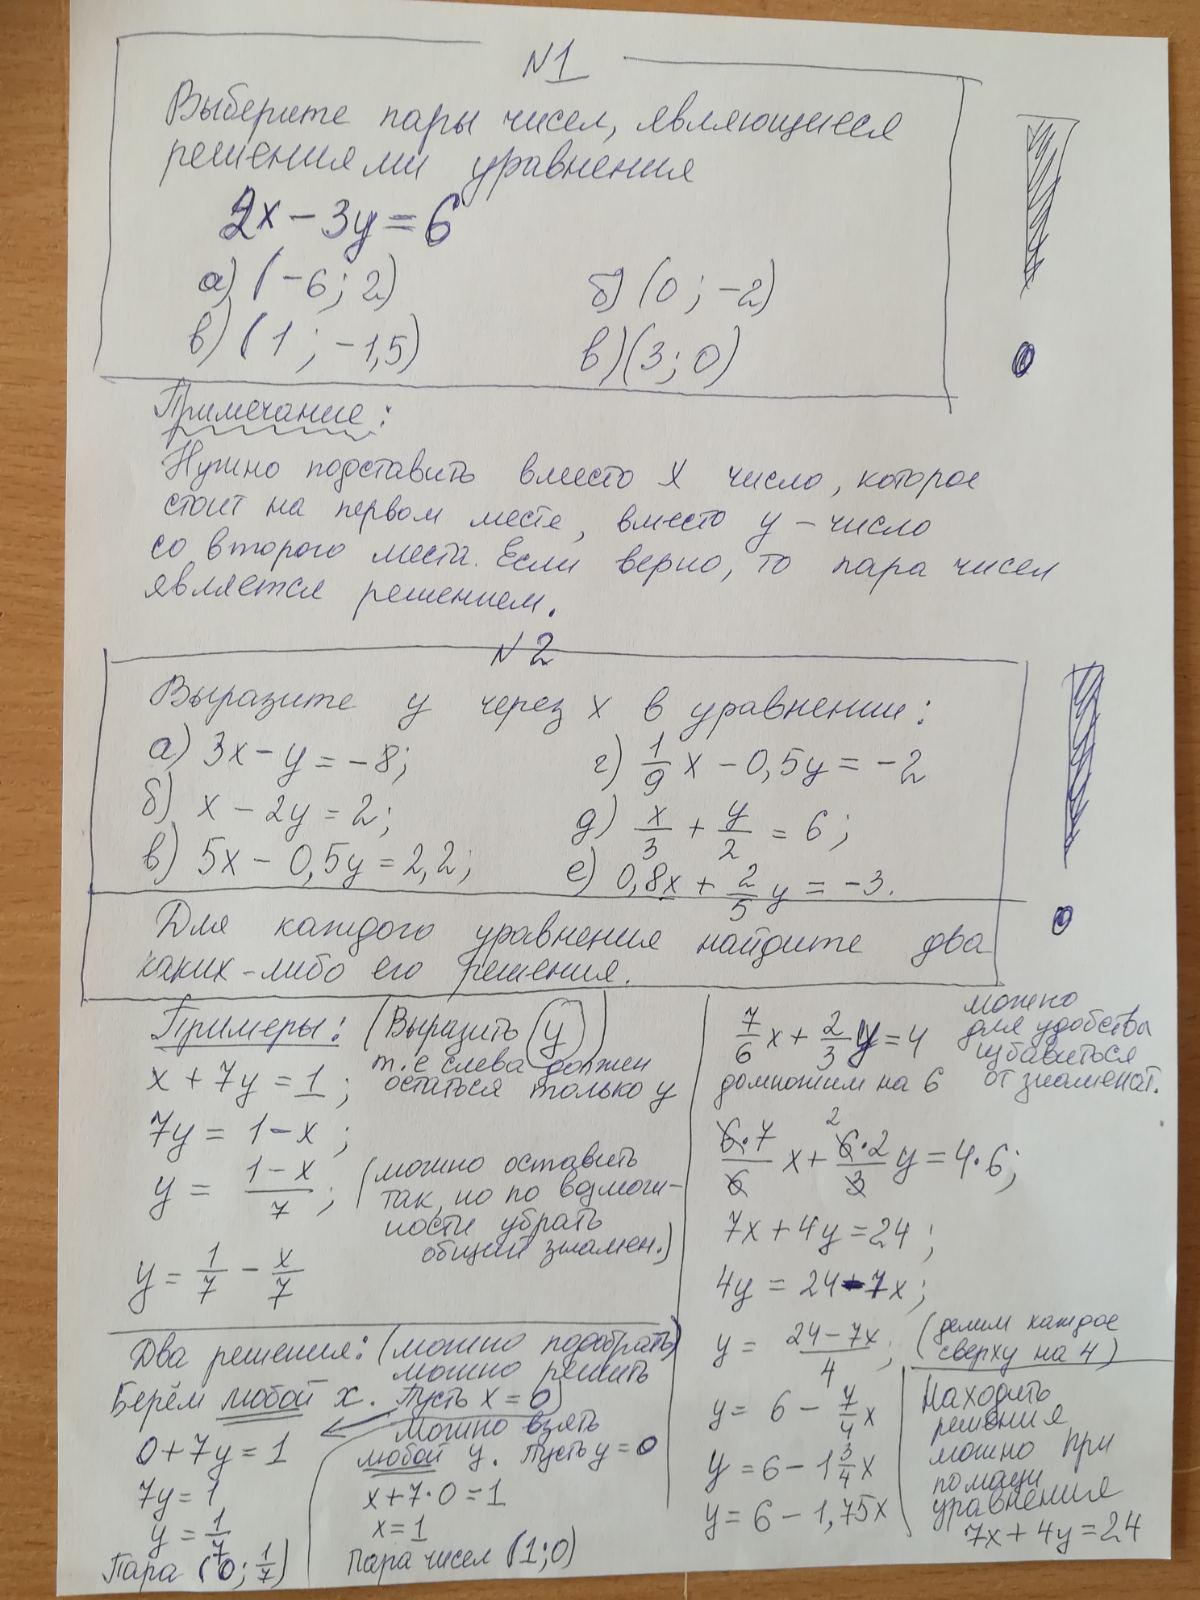 №1
Выберите пары чисел, являющиеся
решениями уравнения
2x − 3y = 6
а) (−6; 2)
б) (0; −2)
в) (1; −1,5)
в) (3; 0)
Примечание:
Нужно подставить вместо x число, которое
стоит на первом месте, вместо y – число
со второго места. Если верно, то пара чисел
является решением.
№2
Выразите y через x в уравнении:
а) 3x − y = −8;
г) 1/9 x − 0,5y = −2
б) x − 2y = 2;
д) x/3 + y/2 = 6;
в) 5x − 0,5y = 2,2;
е) 0,8x + 2/5 y = −3.
Для каждого уравнения найдите два
каких-либо его решения.
Примеры: (Выразить y
т.е слева должен
остаться только y
x + 7y = 1;
7y = 1 − x;
y = (1 − x)/7;
(можно оставить
так, но по возмож-
ности убрать
общий знамен.)
y = 1/7 − x/7
Два решения: (можно подобрать)
можно решить
Берём любой x. Пусть x = 0
0 + 7y = 1
7y = 1
y = 1/7
Пара (0; 1/7)
Можно взять
любой y. Пусть y = 0
x + 7·0 = 1
x = 1
Пара чисел (1; 0)
7/6 x + 2/3 y = 4
можно
для удобства
избавиться
от знаменат.
домножим на 6
6·7/6 x + 6·2/3 y = 4·6;
2
7x + 4y = 24;
4y = 24 − 7x;
y = (24 − 7x)/4;
(делим каждое
сверху на 4)
y = 6 − 7/4 x
y = 6 − 1 3/4 x
y = 6 − 1,75x
Находить
решения
можно при
помощи
уравнения
7x + 4y = 24